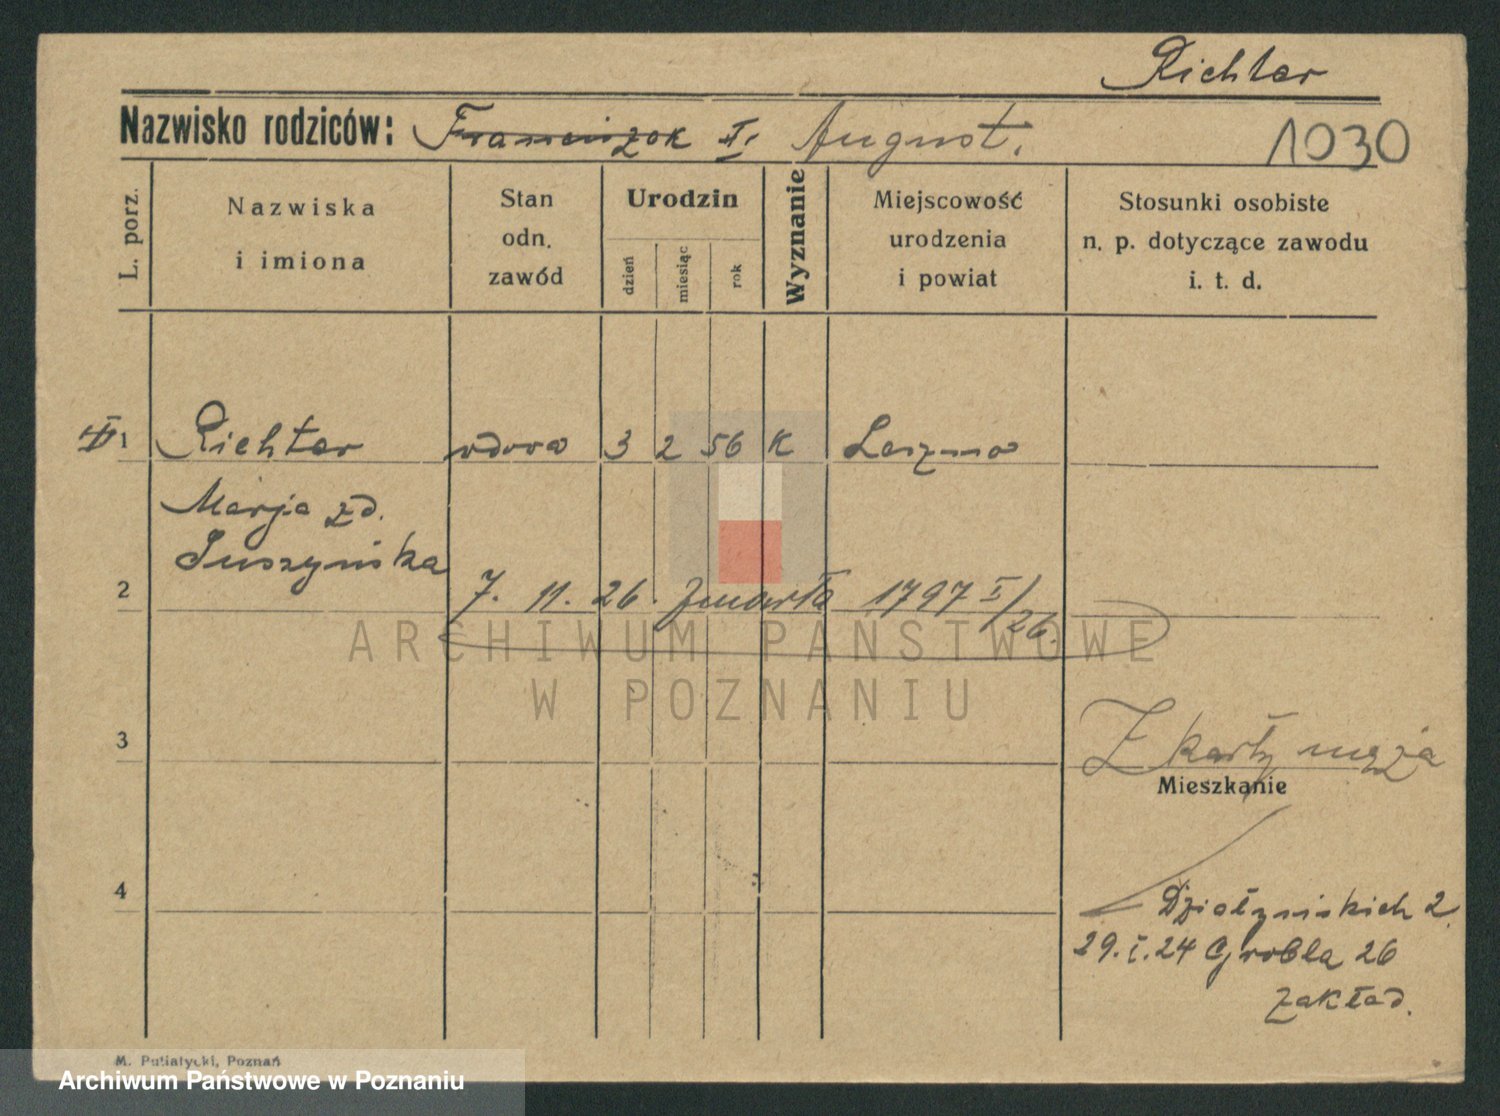 Richter
Nazwisko rodziców: Franciszek II. August.
1030
L. porz.
Nazwiska
i imiona
Stan
odn.
zawód
Urodzin
dzień
miesiąc
rok
Wyznanie
Miejscowość
urodzenia
i powiat
Stosunki osobiste
n. p. dotyczące zawodu
i. t. d.
1 Richter wdowa 3 2 56 K Leszno
Marja zd.
Suszyńska
2
7. 11. 26. zmarła 1797 I/26.
ARCHIWUM PAŃSTWOWE
W POZNANIU
3
Z karty męża
Mieszkanie
4
Działyńskich 2
29. I. 24 Grobla 26
zakład.
M. Putiatycki, Poznań
Archiwum Państwowe w Poznaniu